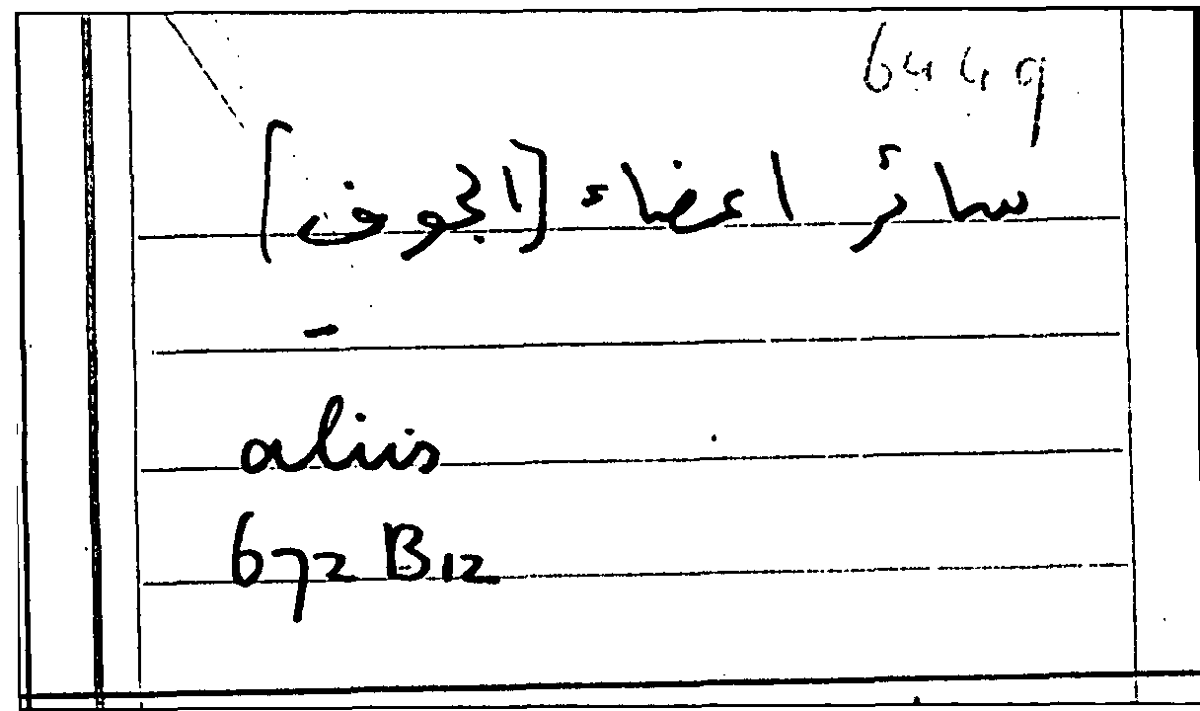 6449
سائر اعضاء [الجوف]
-
aliis
672 B12